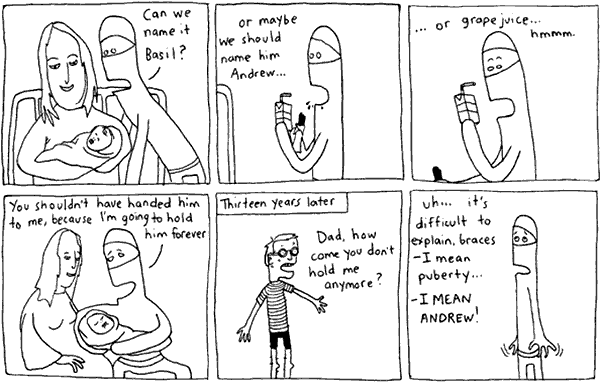 Can we
name it
Basil?
or maybe
we should
name him
Andrew...
... or grape juice...
hmmm.
You shouldn't have handed him
to me, because I'm going to hold
him forever
Thirteen years later
Dad, how
come you don't
hold me
anymore?
uh... it's
difficult to
explain, braces
-I mean
puberty...
-I MEAN
ANDREW!